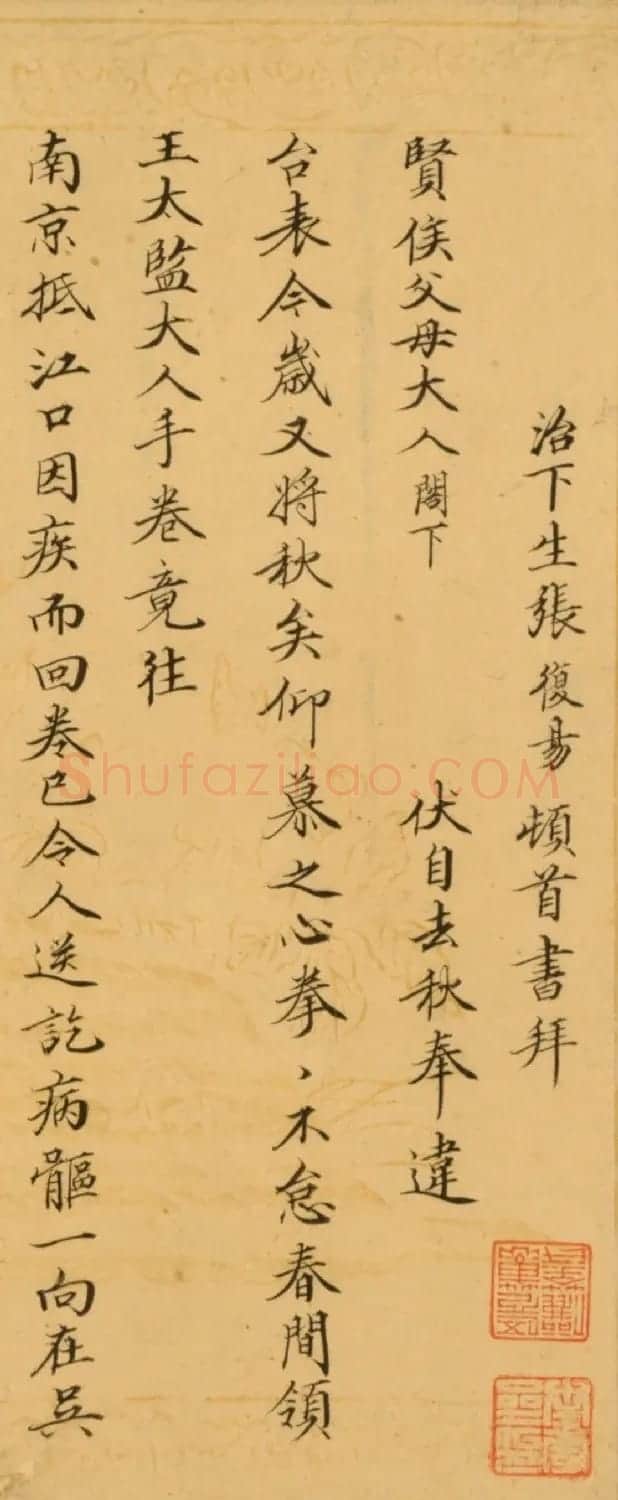 治下生張復昜頓首書拜
賢侯父母大人閤下 伏自去秋奉違
台表今歲又將秋矣仰慕之心拳〻不怠春間領
王太監大人手卷竟往
南京抵江口因疾而回卷已令人送訖病軀一向在吳
Shufaziliao.COM